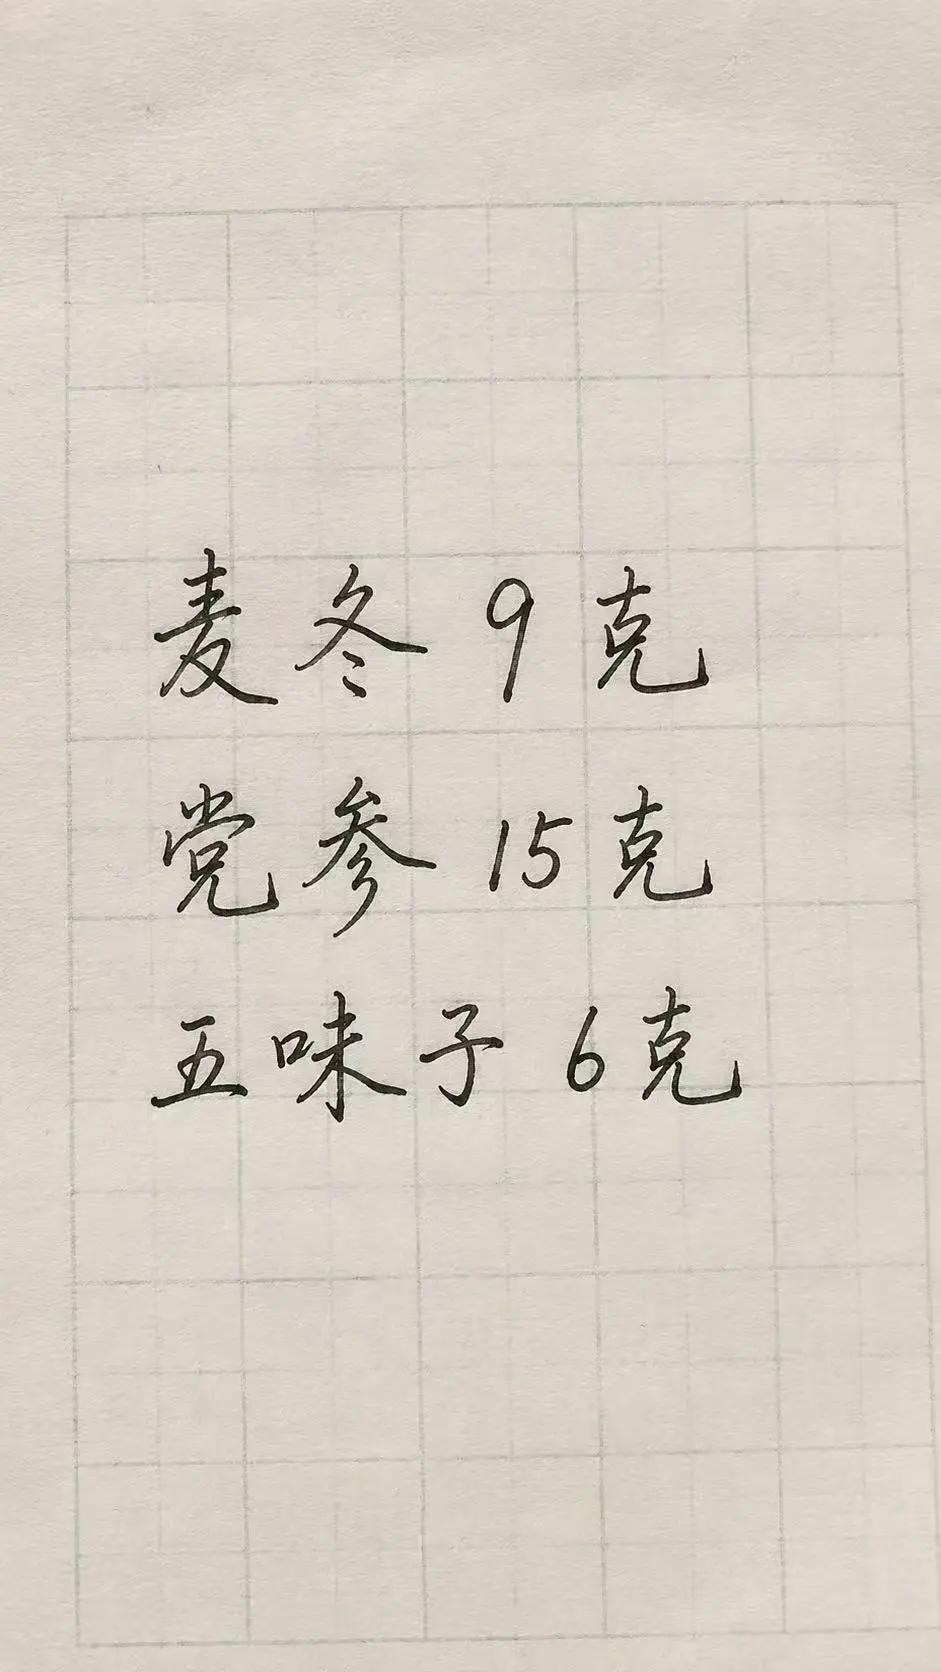 麦冬 9克
党参 15克
五味子 6克